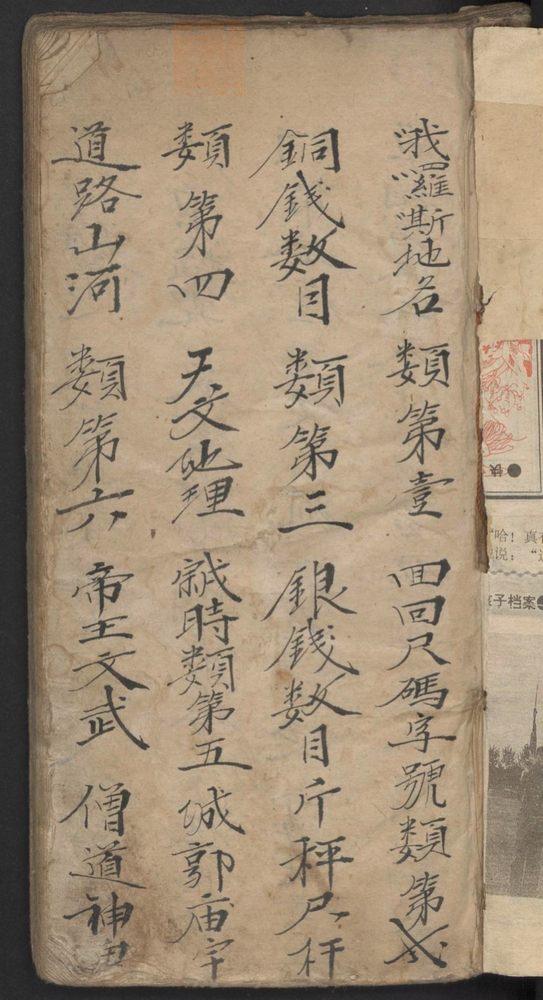 哦囉嘶地名 類第壹 回回尺碼字號類第弍
銅錢数目 類第三 銀錢数目斤秤尺杆
類第四 天文地理 時類第五 城郭庙宇
道路山河 類第六 帝王文武 僧道神
哈！真
说：
子档案